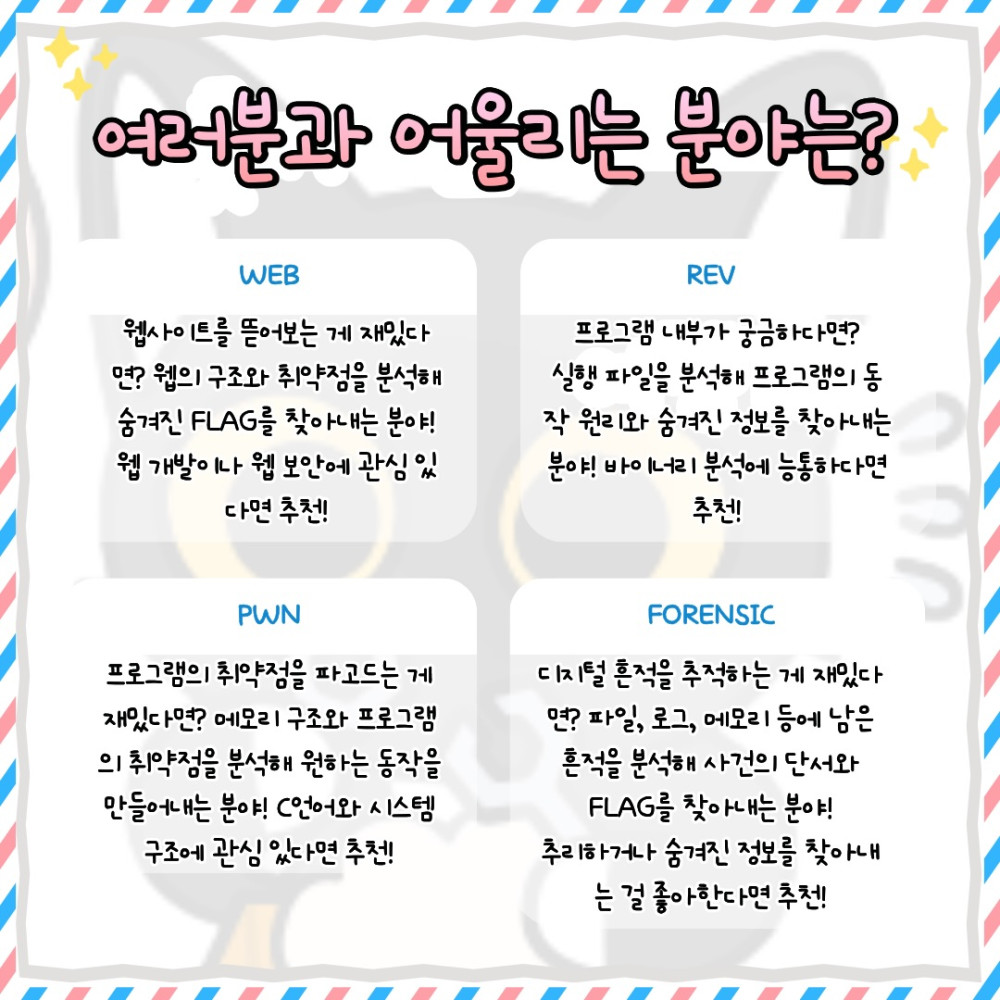 여러분과 어울리는 분야는?
WEB
웹사이트를 뜯어보는 게 재밌다
면? 웹의 구조와 취약점을 분석해
숨겨진 FLAG를 찾아내는 분야!
웹 개발이나 웹 보안에 관심 있
다면 추천!
REV
프로그램 내부가 궁금하다면?
실행 파일을 분석해 프로그램의 동
작 원리와 숨겨진 정보를 찾아내는
분야! 바이너리 분석에 능통하다면
추천!
PWN
프로그램의 취약점을 파고드는 게
재밌다면? 메모리 구조와 프로그램
의 취약점을 분석해 원하는 동작을
만들어내는 분야! C언어와 시스템
구조에 관심 있다면 추천!
FORENSIC
디지털 흔적을 추적하는 게 재밌다
면? 파일, 로그, 메모리 등에 남은
흔적을 분석해 사건의 단서와
FLAG를 찾아내는 분야!
추리하거나 숨겨진 정보를 찾아내
는 걸 좋아한다면 추천!